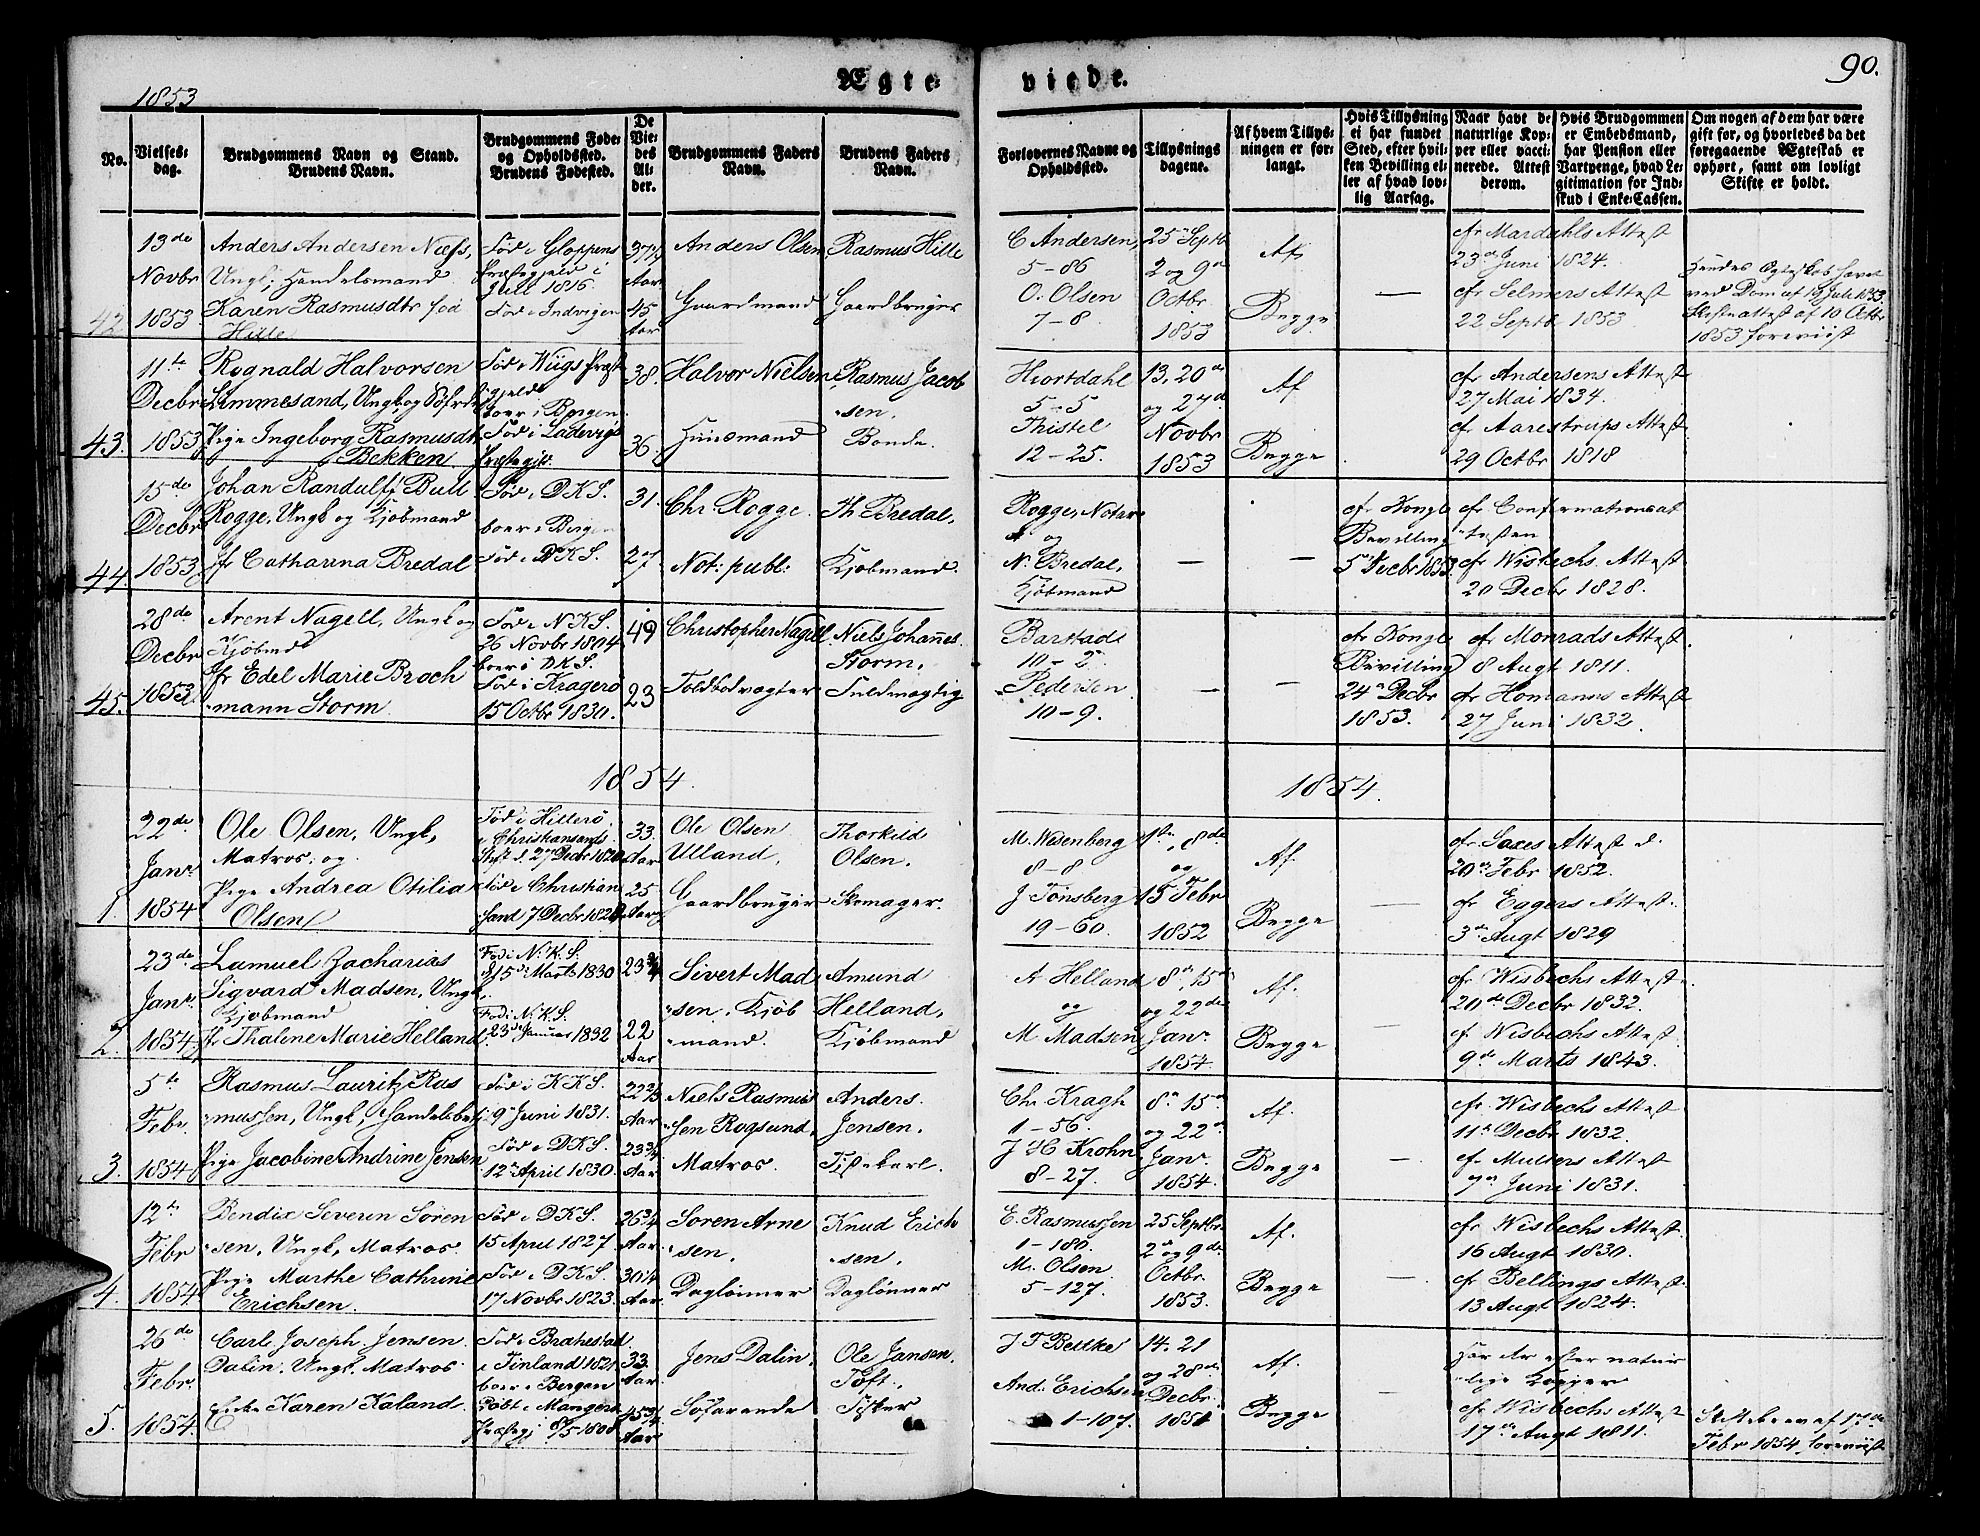 1853
Ægte
viede.
90.
No.
Vielses-
dag.
Brudgommens Navn og Stand.
Brudens Navn.
Brudgommens Føde-
og Opholdssted.
Brudens Fødested.
De
Vie-
des
Al-
der.
Brudgommens Faders
Navn.
Brudens Faders
Navn.
Forlovernes Navne og
Opholdssted.
Tillysnings
dagene.
Af hvem Tillys-
ningen er for-
langt.
Hvis Tillysning
ei har fundet
Sted, efter hvil-
ken Bevilling el-
ler af hvad lov-
lig Aarsag.
Naar havt de
naturlige Kop-
per eller vacci-
nerede. Attest
derom.
Hvis Brudgommen
er Embedsmand,
har Pension eller
Vartpenge, hvad Le-
gitimation for Ind-
skud i Enke-Cassen.
Om nogen af dem har være
gift for, og hvorledes da det
foregaaende Ægteskab er
ophørt, samt om lovligt
Skifte er holdt.
42.
13de
Novbr
1853
Anders Andersen
Ungk, Handelsmand
Karen Rasmusdtr fød
Hille
Fød i Gloppens
Præstegjeld i
Juli 1816
Fød i Indvigen
Aar
45
Aar
Anders Olsen
Gaardmand
Rasmus Hille
Gaardbruger
C Andersen,
5-86
O. Olsen
7-8.
25 Septb
2 og 9de
Octbr
1853
Af
Begge
—
cfr Mardahls Attest
23de Juni 1824.
cfr Selmers Attest
22 Septb 1853
Hendes Ægteskab hævet
ved Dom af 19 Juli 1853.
Skifteattest af 10 Octbr
1853 foreviist
43.
11te
Decbr
1853
Rognald Halvorsen
Lammesand, Ungk og
Pige Ingeborg Rasmusdt
Bekken
Fød i Wiigs Præst
gjeld
boer i Bergen
Fød i Ladevigs
Præstegjd.
38.
36.
Halvor Nielsen
Huusmand
Rasmus Jacob
sen.
Bonde.
Hiortdahl
5-5
Thistel
12-25.
13, 20de
og 27d
Novbr
1853
Af
Begge
cfr Andersens Attest
27 Mai 1834.
cf Aarestrups Attest
29 Octbr 1818
44.
15de
Decbr
1853
Johan Randulff Bull
Rogge, Ungk og Kjøbmand
Jfr Catharina Bredal
Fød i D.K.S.
boer i Bergen
Fød i D.K.S.
31.
27.
Chr Rogge
Not: publ:
Th Bredal,
Kjøbmand.
Rogge, Notar
og
N. Bredal,
Kjøbmand
—
—
cfr Kongl
Bevilling
5 Decbr 1853.
cfr Confirmationsat
testen
cfr Wisbechs Attest
20 Decbr 1828.
45.
28de
Decbr
1853
Arent Nagell, Ungk og
Kjøbmd
Jfr Edel Marie Broch
mann Storm
Fød i N.K.S.
26 Novbr 1804
boer i D.K.S.
Fød i Kragerø
15 Octbr 1830.
49
23
Christopher Nagell
Toldbodvagter
Niels Johannes
Storm,
Fuldmægtig
Barstads
10-2
Pedersen
10-9.
—
—
cfr Kongl
Bevilling
24 Decbr
1853.
cfr Monrads Attest
8 Augt 1811.
cfr Homanns Attest
27 Juni 1832.
1854.
1854.
1.
22de
Janr
1854
Ole Olsen, Ungk,
Matros, og
Pige Andrea Otilia
Olsen
Fød i Hitterø
i Christiansands
Stift d. 27 Decbr 1820
Fød i Christian
sand 7 Decbr
33
Aar
25
Aar
Ole Olsen
Ulland,
Gaardbruger
Thorkild
Olsen.
Skomager.
M. Wesenberg
8-8
J Tønsberg
19-60.
8de
og
15 Febr
1852
Af.
Begge
—
cfr Saxes Attest d.
20de Febr 1852.
cfr Eggers Attest.
3de Augt 1829
2.
23de
Janr
1854
Samuel Zacharias
Sigvard Madsen, Ungk
Kjøbmand
Jfr Thaline Marie Helland
Fød i N.K.S.
d 15de Marts 1830
Fød i N.K.S.
23de Januar 1832
23 3/4
22
Aar
Sivert Mad
sen, Kjøb
mand.
Amund
Helland,
Kjøbmand
A Helland
og
M Madsen
8de, 15de
og 22de
Janr
1854
Af.
Begge
—
cfr Wisbechs Attest
20de Decbr 1832.
cf Wisbechs Attest
9de Marts 1843.
3.
5te
Febr
1854
Rasmus Lauritz Ras
mussen, Ungk, Handelsbet
Pige Jacobine Andrine Jensen
Fød i K.K.S.
9 Juni 1831.
Fød i D.K.S.
12 April 1830.
22 2/3
Aar
23 3/4
Aar
Niels Rasmus
sen Rogsund,
Matros.
Anders
Jensen.
Chr Kragh
1-56.
J H Krohn
8-27.
8de 15de
og 22de
Janr
1854.
Af.
Begge
—
cfr Wisbechs Attest
11te Decbr 1832.
cfr Multers Attest
7de Juni 1831.
4.
12te
Febr
1854
Bendix Severin Søren
sen, Ungk, Matros
Pige Marthe Cathrine
Erichsen.
Fød i D.K.S.
15 April 1827.
Fød i D.K.S.
17 Novbr 1823.
26 3/4
Aar
30 1/4
Aar
Søren Arne
sen.
Daglønner
Knud Erich
sen.
Daglønner
E. Rasmussen
1-180.
M. Olsen
5-127.
25 Septbr
2de og 9de
Octbr
1853.
Af.
Begge
—
cfr Wisbechs Attest
16 Augt 1830.
cfr Bellings Attest
13 Augt 1824.
5.
26de
Febr.
1854.
Carl Joseph Jensen
Dalin, Ungk. Matros
Enke Karen Kaland
Fød i Brahestad
i Finland 1821
boer i Bergen
Døbt i Mangers
Præstegj 8/5 1808
33
Aar
45 3/4
Aar
Jens Dalin,
Søfarende
Ole Jansen
Toft.
Fisker
J F Bettke
And. Erichsen
1-107.
14. 21
og 28de
Decbr
1851
Af.
Begge
—
har Ar efter natur
lige Kopper
cfr Wisbechs Attest
17de Augt 1811.
Skiftebrev af 17de
Febr 1854 foreviist